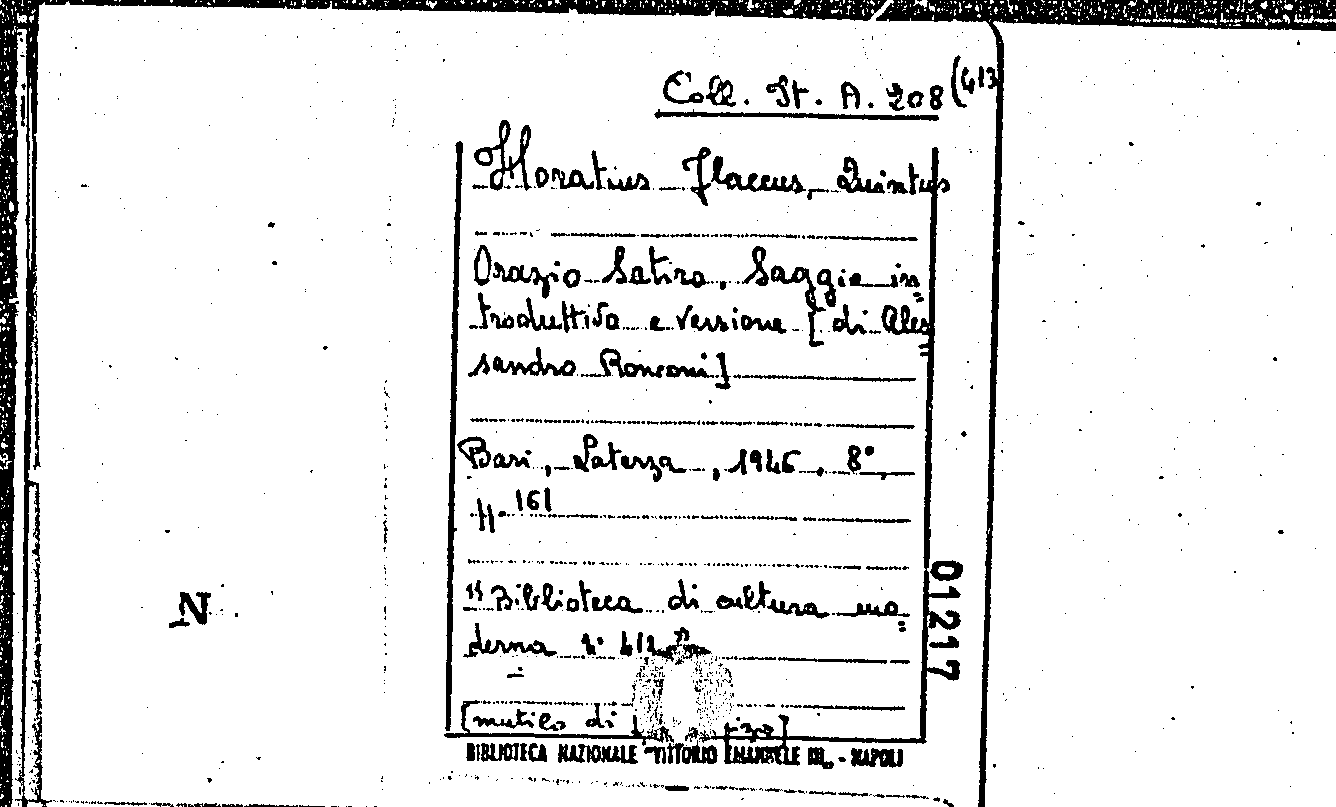 Coll. It. A. 208 (413
Horatius Flaccus, Quintus
Orazio Satiro. Saggio in=
troduttivo e versione [di Ales=
sandro Ronconi]
Bari, Laterza, 1946. 8°,
p. 161
"Biblioteca di cultura mo=
derna n° 412"
[mutilo di
BIBLIOTECA NAZIONALE "VITTORIO EMANUELE III" - NAPOLI
01217
N